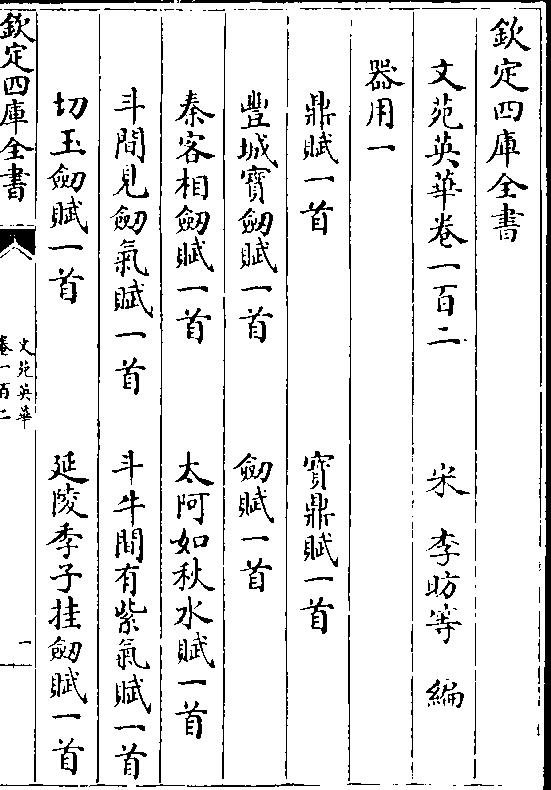 欽定四庫全書
文苑英華卷一百二　宋　李昉等　編
器用一
鼎賦一首　寶鼎賦一首
豐城寶劒賦一首　劒賦一首
秦客相劒賦一首　太阿如秋水賦一首
斗間見劒氣賦一首　斗牛間有紫氣賦一首
切玉劒賦一首　延陵季子挂劒賦一首
欽定四庫全書　文苑英華
卷一百二　一